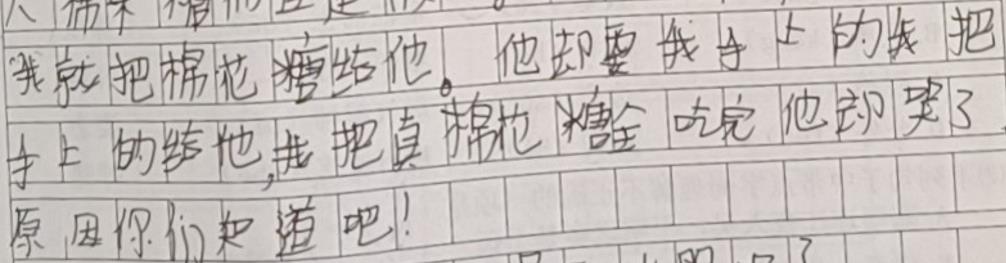 我就把棉花糖给他。他却要我手上的我把
手上的给他,我把真棉花糖全吃完他却哭了
原因你们知道吧!